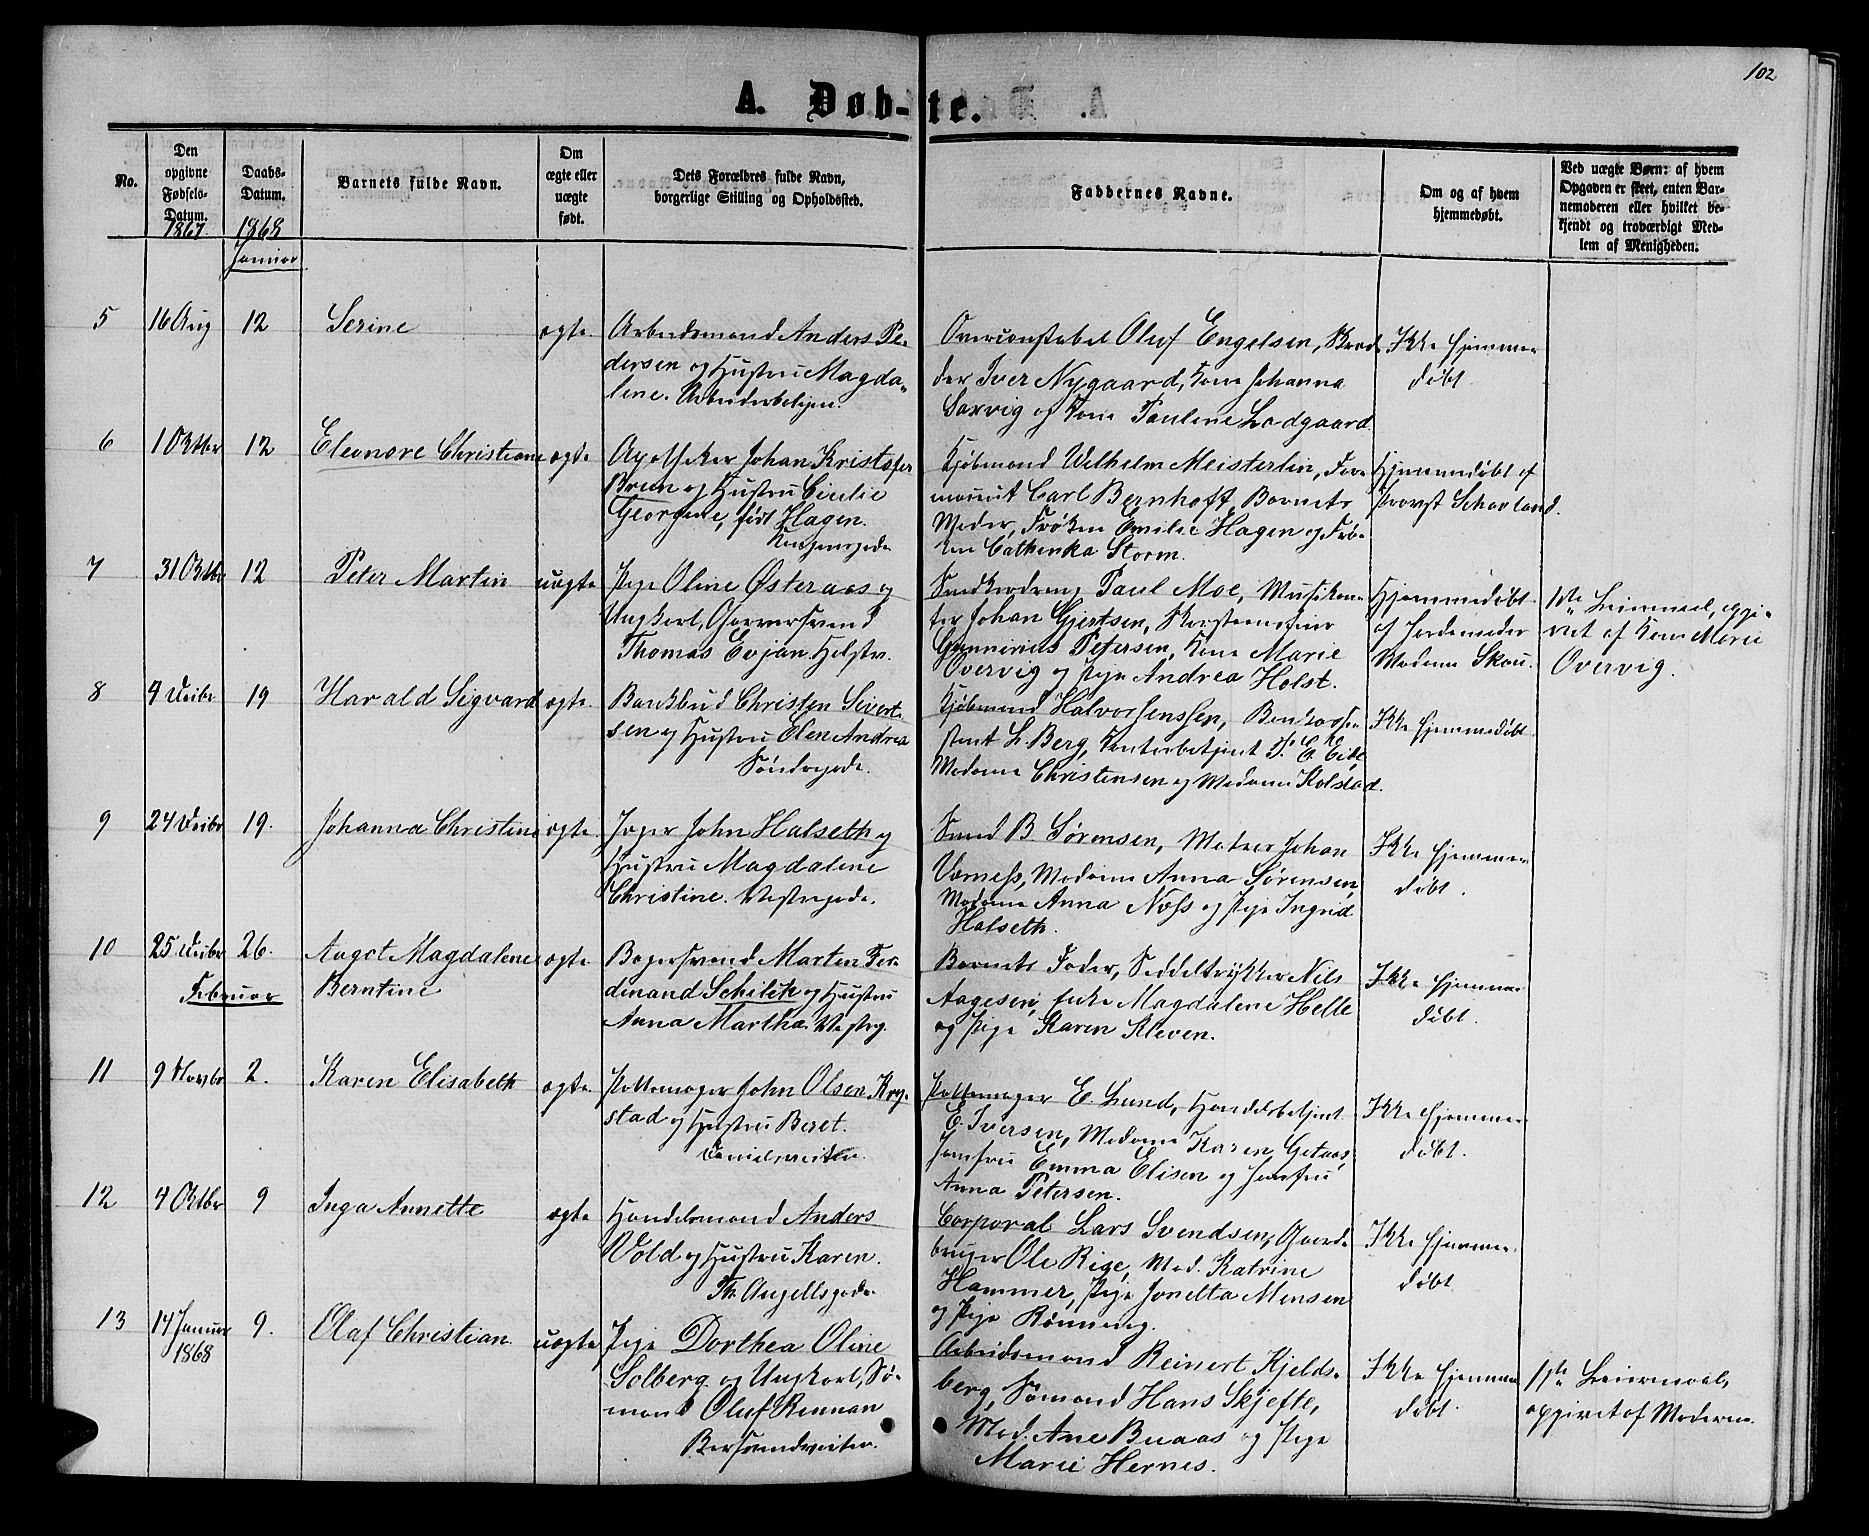 102
A. Døb-te.
No.
Den opgivne Fødsels-Datum.
1867.
Daabs-Datum.
1868
Januar
Barnets fulde Navn.
Om ægte eller uægte født.
Dets Forældres fulde Navn, borgerlige Stilling og Opholdssted.
Faddernes Navne.
Om og af hvem hjemmedøbt.
Ved uægte Børn: af hvem Opgaven er skeet, enten Barnemoderen eller hvilket bekjendt og troværdigt Medlem af Menigheden.
5 16 Aug 12 Serine ægte
Arbeidsmand Anders Pe-
dersen og Hustru Magda-
lene.
Overconstabel Oluf Engelsen,
Iver Nygaard, Kone Johanna
Saxvig og Kone Pauline Ladgaard
Ikke hjemme
døbt.
6 1 Oktbr 12 Eleonore Christiane ægte
Apotheker Johan Kristofer
Brun og Hustru Cicilie
Georgine, født Hagen.
Kjøbmand Wilhelm Meisterlin,
Carl Bernhoft, Barnets
Moder, Frøken Emilie Hagen og Frø-
ken Cathinka Storm.
Hjemmedøbt af
Provst Schavland.
7 31 Oktbr 12 Peter Martin uægte
Pige Oline Østeraas og
Ungkarl, Garversvend
Thomas Evjan.
Paul Moe, Musikan-
ter Johan Gjertsen,
Gunnerius Petersen, Kone Marie
Overvig og Pige Andrea Holst.
Hjemmedøbt
af Jordemoder
Madame Skau.
1ste Leiermaal, opgi-
vet af Kone Marie
Overvig.
8 4 Decbr 19 Harald Sigvard ægte
Bankbud Christen Sivert-
sen og Hustru Elen Andrea
Søndregade.
Kjøbmand Halvorsenssen,
L. Berg, Kontorbetjent E. Eide
Madame Christensen og Madame Kolstad.
Ikke hjemmedøbt
9 24 Decbr 19. Johanna Christine ægte
John Halseth og
Hustru Magdalene
Christine. Vestregade.
Svend B. Sørensen, Johan
Værness, Madame Anna Sørensen,
Madame Anna Næss og Pige Ingrid
Halseth.
Ikke hjemme
døbt.
10 25 Decbr 26. Aagot Magdalene ægte
Berntine
Februar
Bagersvend Martin Fer-
dinand Schilck og Hustru
Anna Martha. Vestreg.
Barnets Fader, Seddeltrykker Nils
Aagesen, Enke Magdalene Helle
og Pige Karen Kleven.
Ikke hjemme
døbt.
11 9 Novbr 2. Karen Elisabeth ægte
Pottemager John Olsen
stad og Hustru Beret.
Pottemager E. Lund, Handelsbetjent
E. Iversen, Madame Karen Getaas,
Jomfru Emma Elisen og Jomfru
Anna Petersen.
Ikke hjemme
døbt.
12 4 Oktbr 9 Inga Annette ægte
Handelsmand Anders
Vold og Hustru Karen.
Th. Angellsgade.
Corporal Lars Svendsen, Gaard-
bruger Ole Rige, Mad. Katrine
Hammer, Pige Jonetta Monsen
og Pige Rønning.
Ikke hjemme
døbt
13 14 Januar 9. Olaf Christian uægte
1868
Pige Dorthea Oline
Solberg og Ungkarl, Sø-
mand Oluf Rennan
Arbeidsmand Reinert Kjelds-
berg, Sømand Hans Skjefte,
Mad. Ane Buaas og Pige
Marie Hernes.
Ikke hjemme
døbt.
1ste Leiermaal,
opgivet af Moderen.